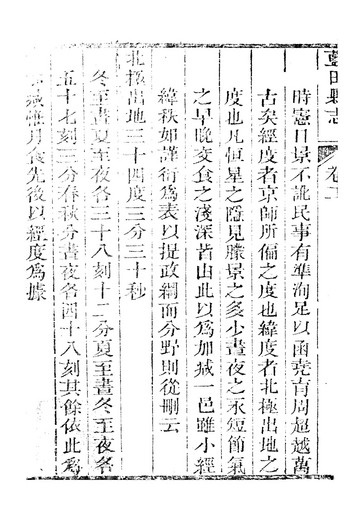 藍田縣志
卷二
時憲日景不訛民事有準洵足以函堯育周超越萬
古矣經度者京師所偏之度也緯度者北極出地之
度也凡恒星之隱見朦景之多少晝夜之永短節氣
之早晚交食之淺深皆由此以為加減一邑雖小經
緯秩如謹衍為表以提政綱而分野則從刪云
北極出地三十四度三分三十秒
冬至晝夏至夜各三十八刻十二分夏至晝冬至夜各
五十七刻三分春秋分晝夜各四十八刻其餘依此為
減惟月食先後以經度為據